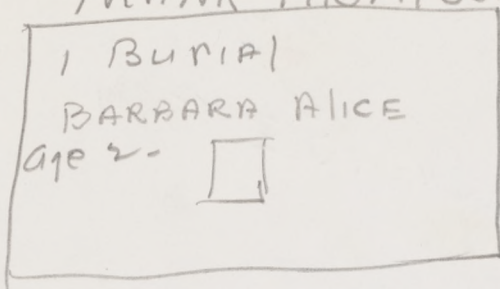 1 BurIAl
BARBARA AlICE
age 2-